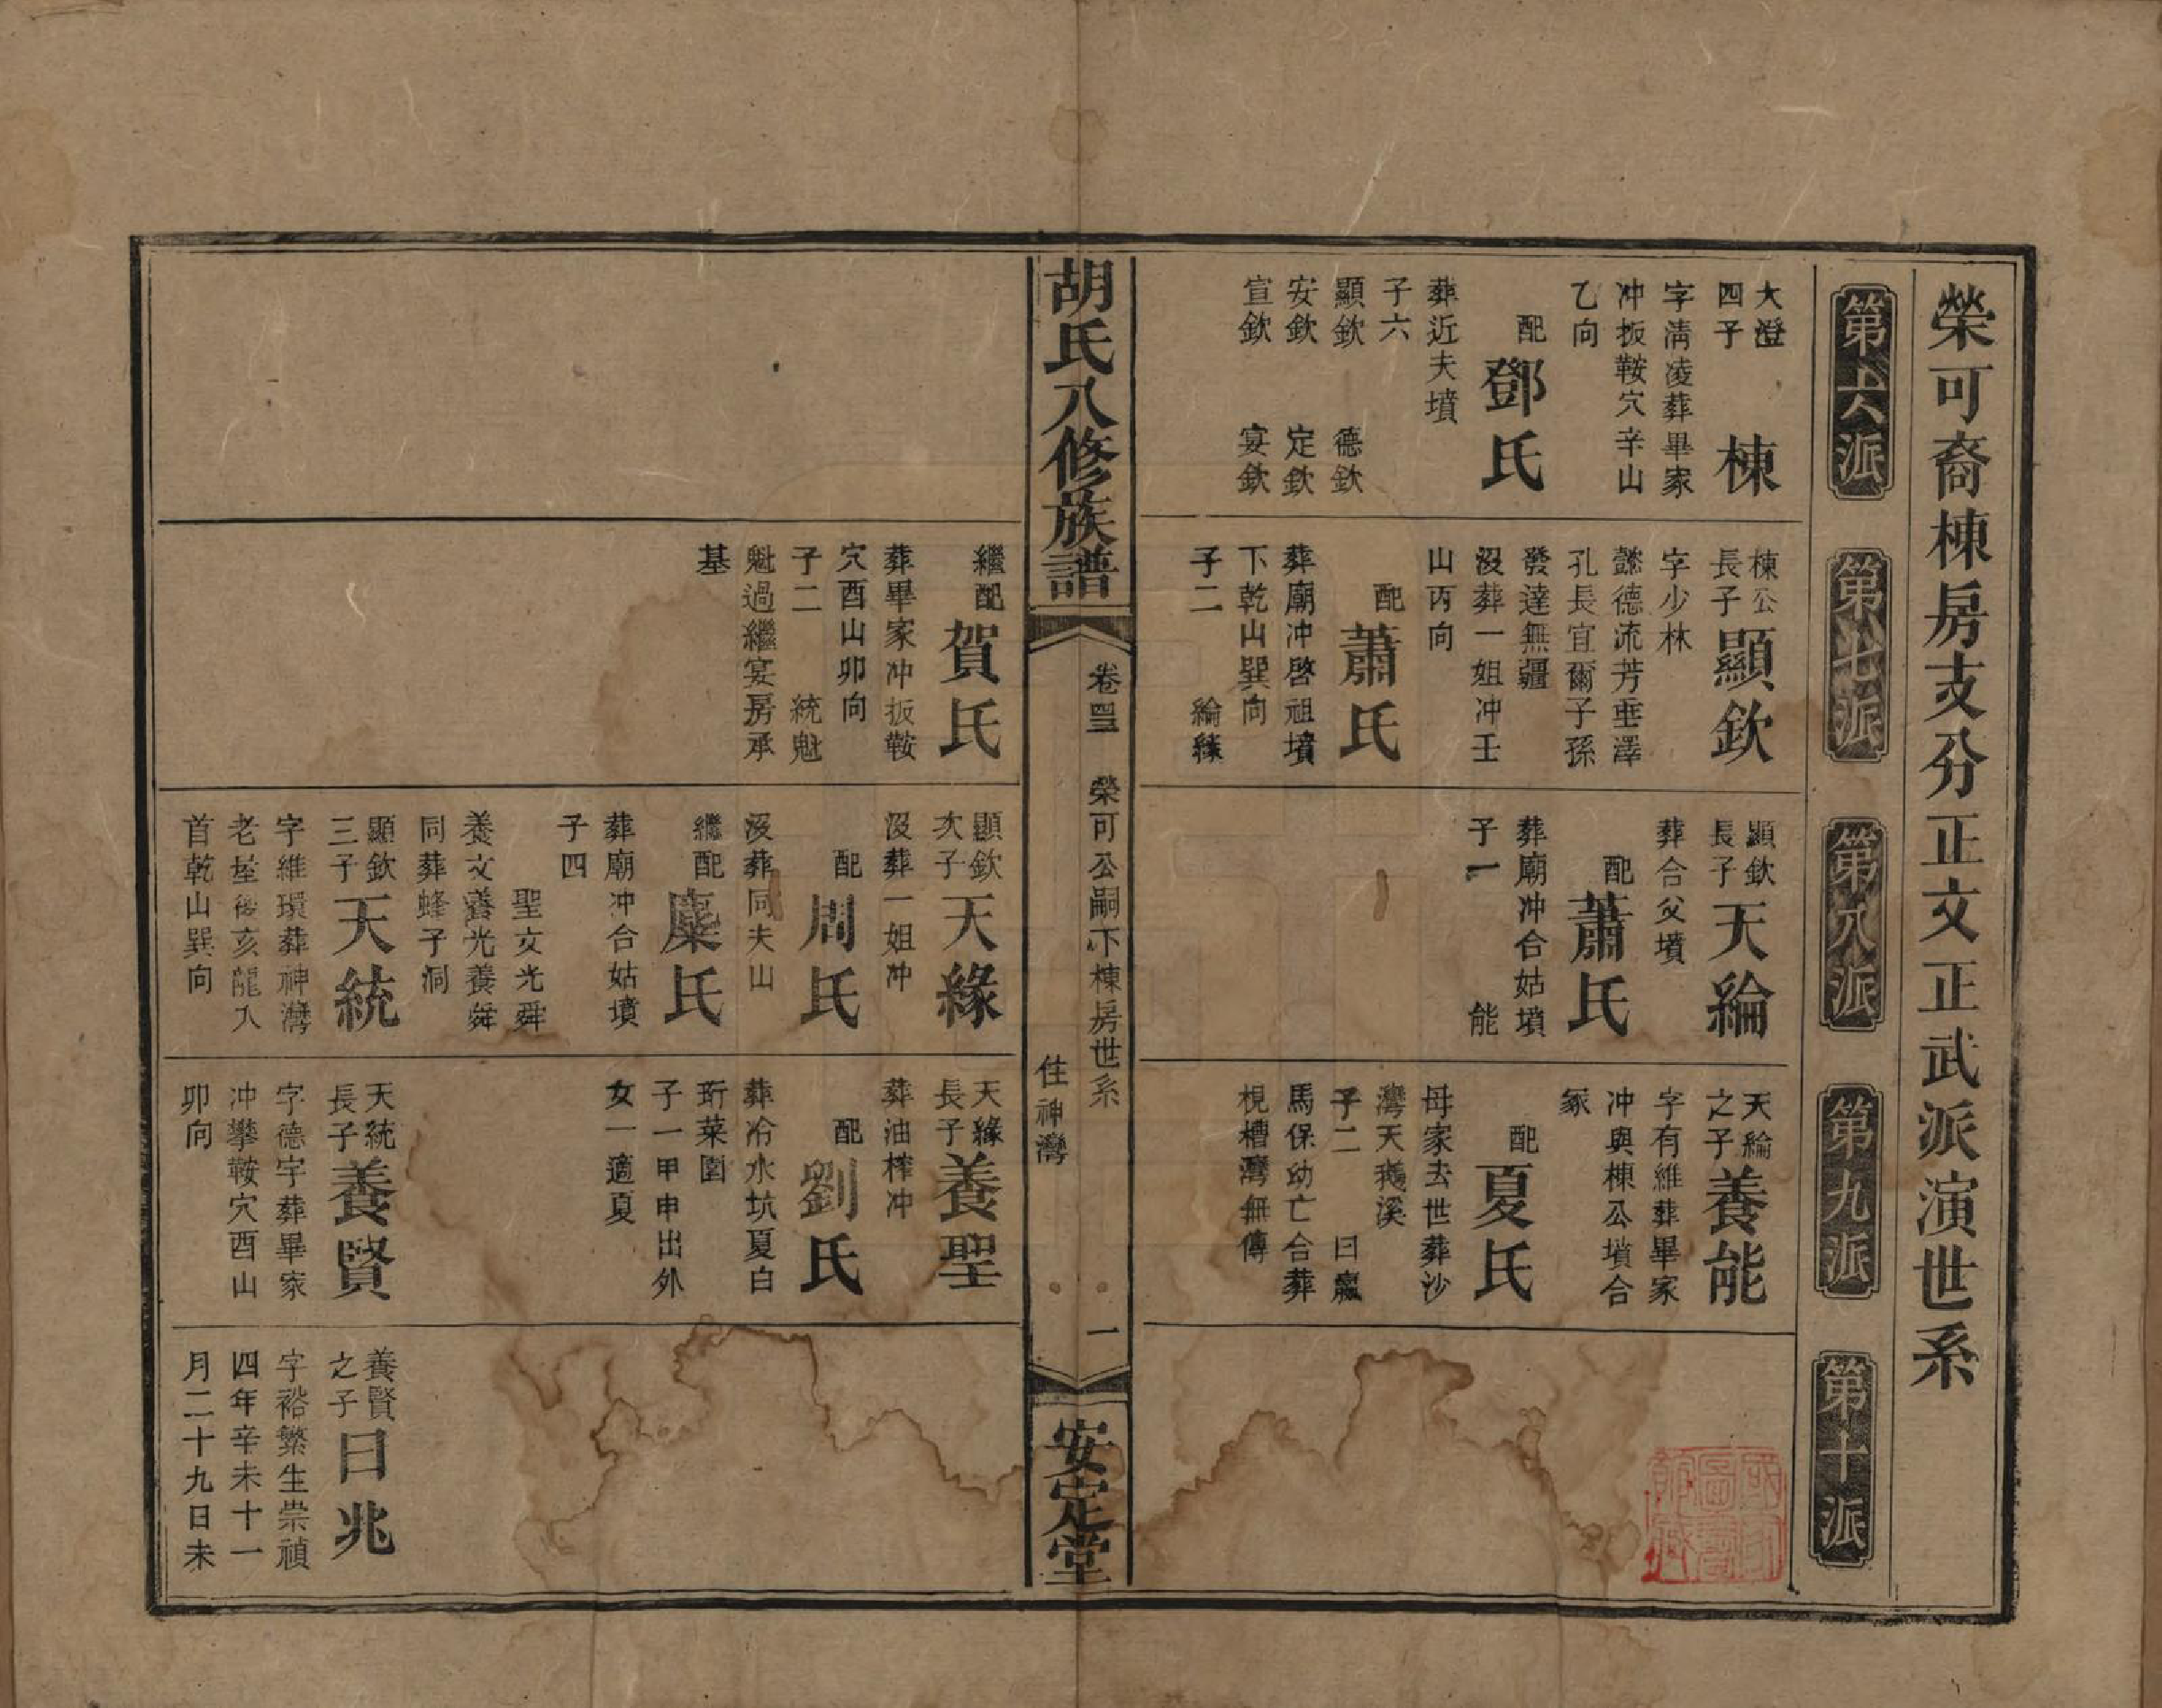 榮可裔棟房支分正文正武派演世系
第六派
第七派
第八派
第九派
第十派
大澄
四子
棟
字淸凌葬畢家
冲扳鞍穴辛山
乙向
配
鄧氏
葬近夫墳
子六
顯欽 德欽
安欽 定欽
宣欽 宴欽
棟公
長子
顯欽
字少林
懿德流芳垂澤
孔長宜爾子孫
發達無疆
沒葬一姐冲壬
山丙向
配
蕭氏
葬廟冲啓祖墳
下乾山巽向
子二 綸緣
顯欽
長子
天綸
葬合父墳
配
蕭氏
葬廟冲合姑墳
子一 能
天綸
之子
養能
字有維葬畢家
冲與棟公墳合
冢
配
夏氏
母家去世葬沙
灣天鵝溪
子二 曰龐
馬保幼亡合葬
梘槽灣無傳
胡氏八修族譜
卷四三
榮可公嗣下棟房世系
住神灣
一
安定堂
繼配
賀氏
葬畢家冲扳鞍
穴酉山卯向
子二 統魁
魁過繼宴房承
基
顯欽
次子
天緣
沒葬一姐冲
配
周氏
沒葬同夫山
繼配
糜氏
葬廟冲合姑墳
子四
聖文光舜
養文養光養舜
同葬蜂子洞
顯欽
三子
天統
字維環葬神灣
老屋後亥龍入
首乾山巽向
天緣
長子
養聖
葬油榨冲
配
劉氏
葬冷水坑夏白
珩菜園
子一甲申出外
女一適夏
天統
長子
養賢
字德宇葬畢家
冲攀鞍穴酉山
卯向
養賢
之子
曰兆
字裕繁生崇禎
四年辛未十一
月二十九日未